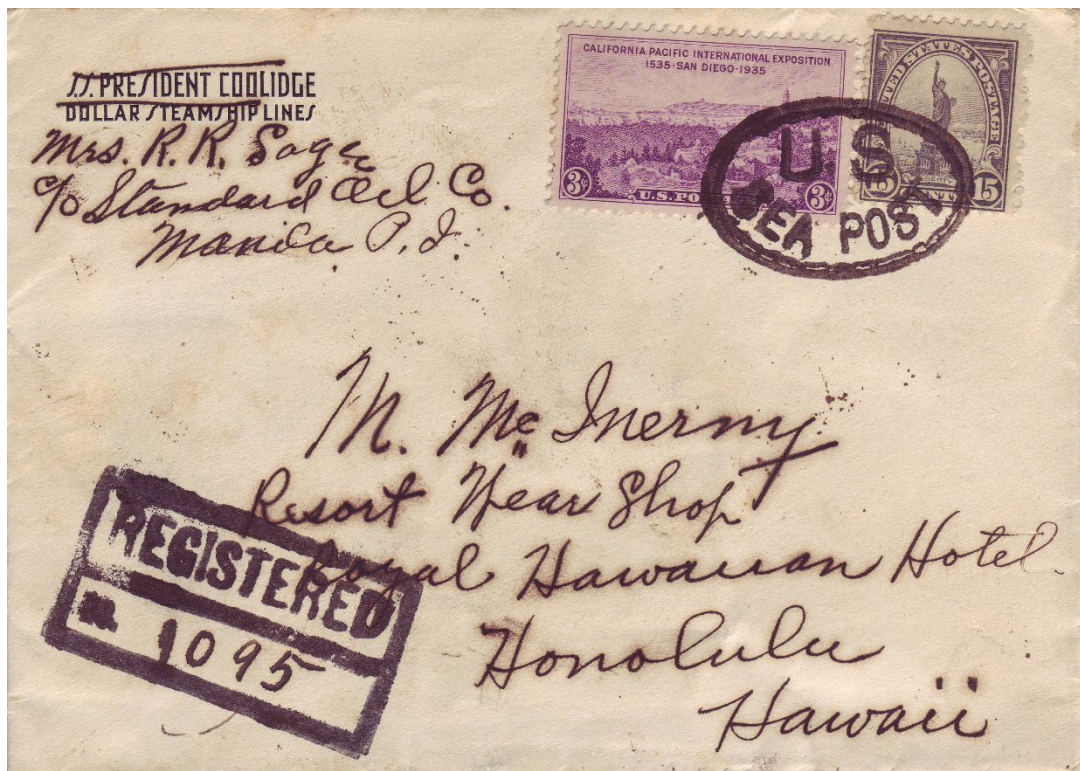 S.S. PRESIDENT COOLIDGE
DOLLAR STEAMSHIP LINES
Mrs. R. R. Sage
c/o Standard Oil Co.
Manila P. I.
CALIFORNIA PACIFIC INTERNATIONAL EXPOSITION
1535 · SAN DIEGO · 1935
3¢ 3¢
UNITED STATES POSTAGE
15
U S
SEA POST
M. McInerny
Resort Wear Shop
Royal Hawaiian Hotel
Honolulu
Hawaii
REGISTERED
1095